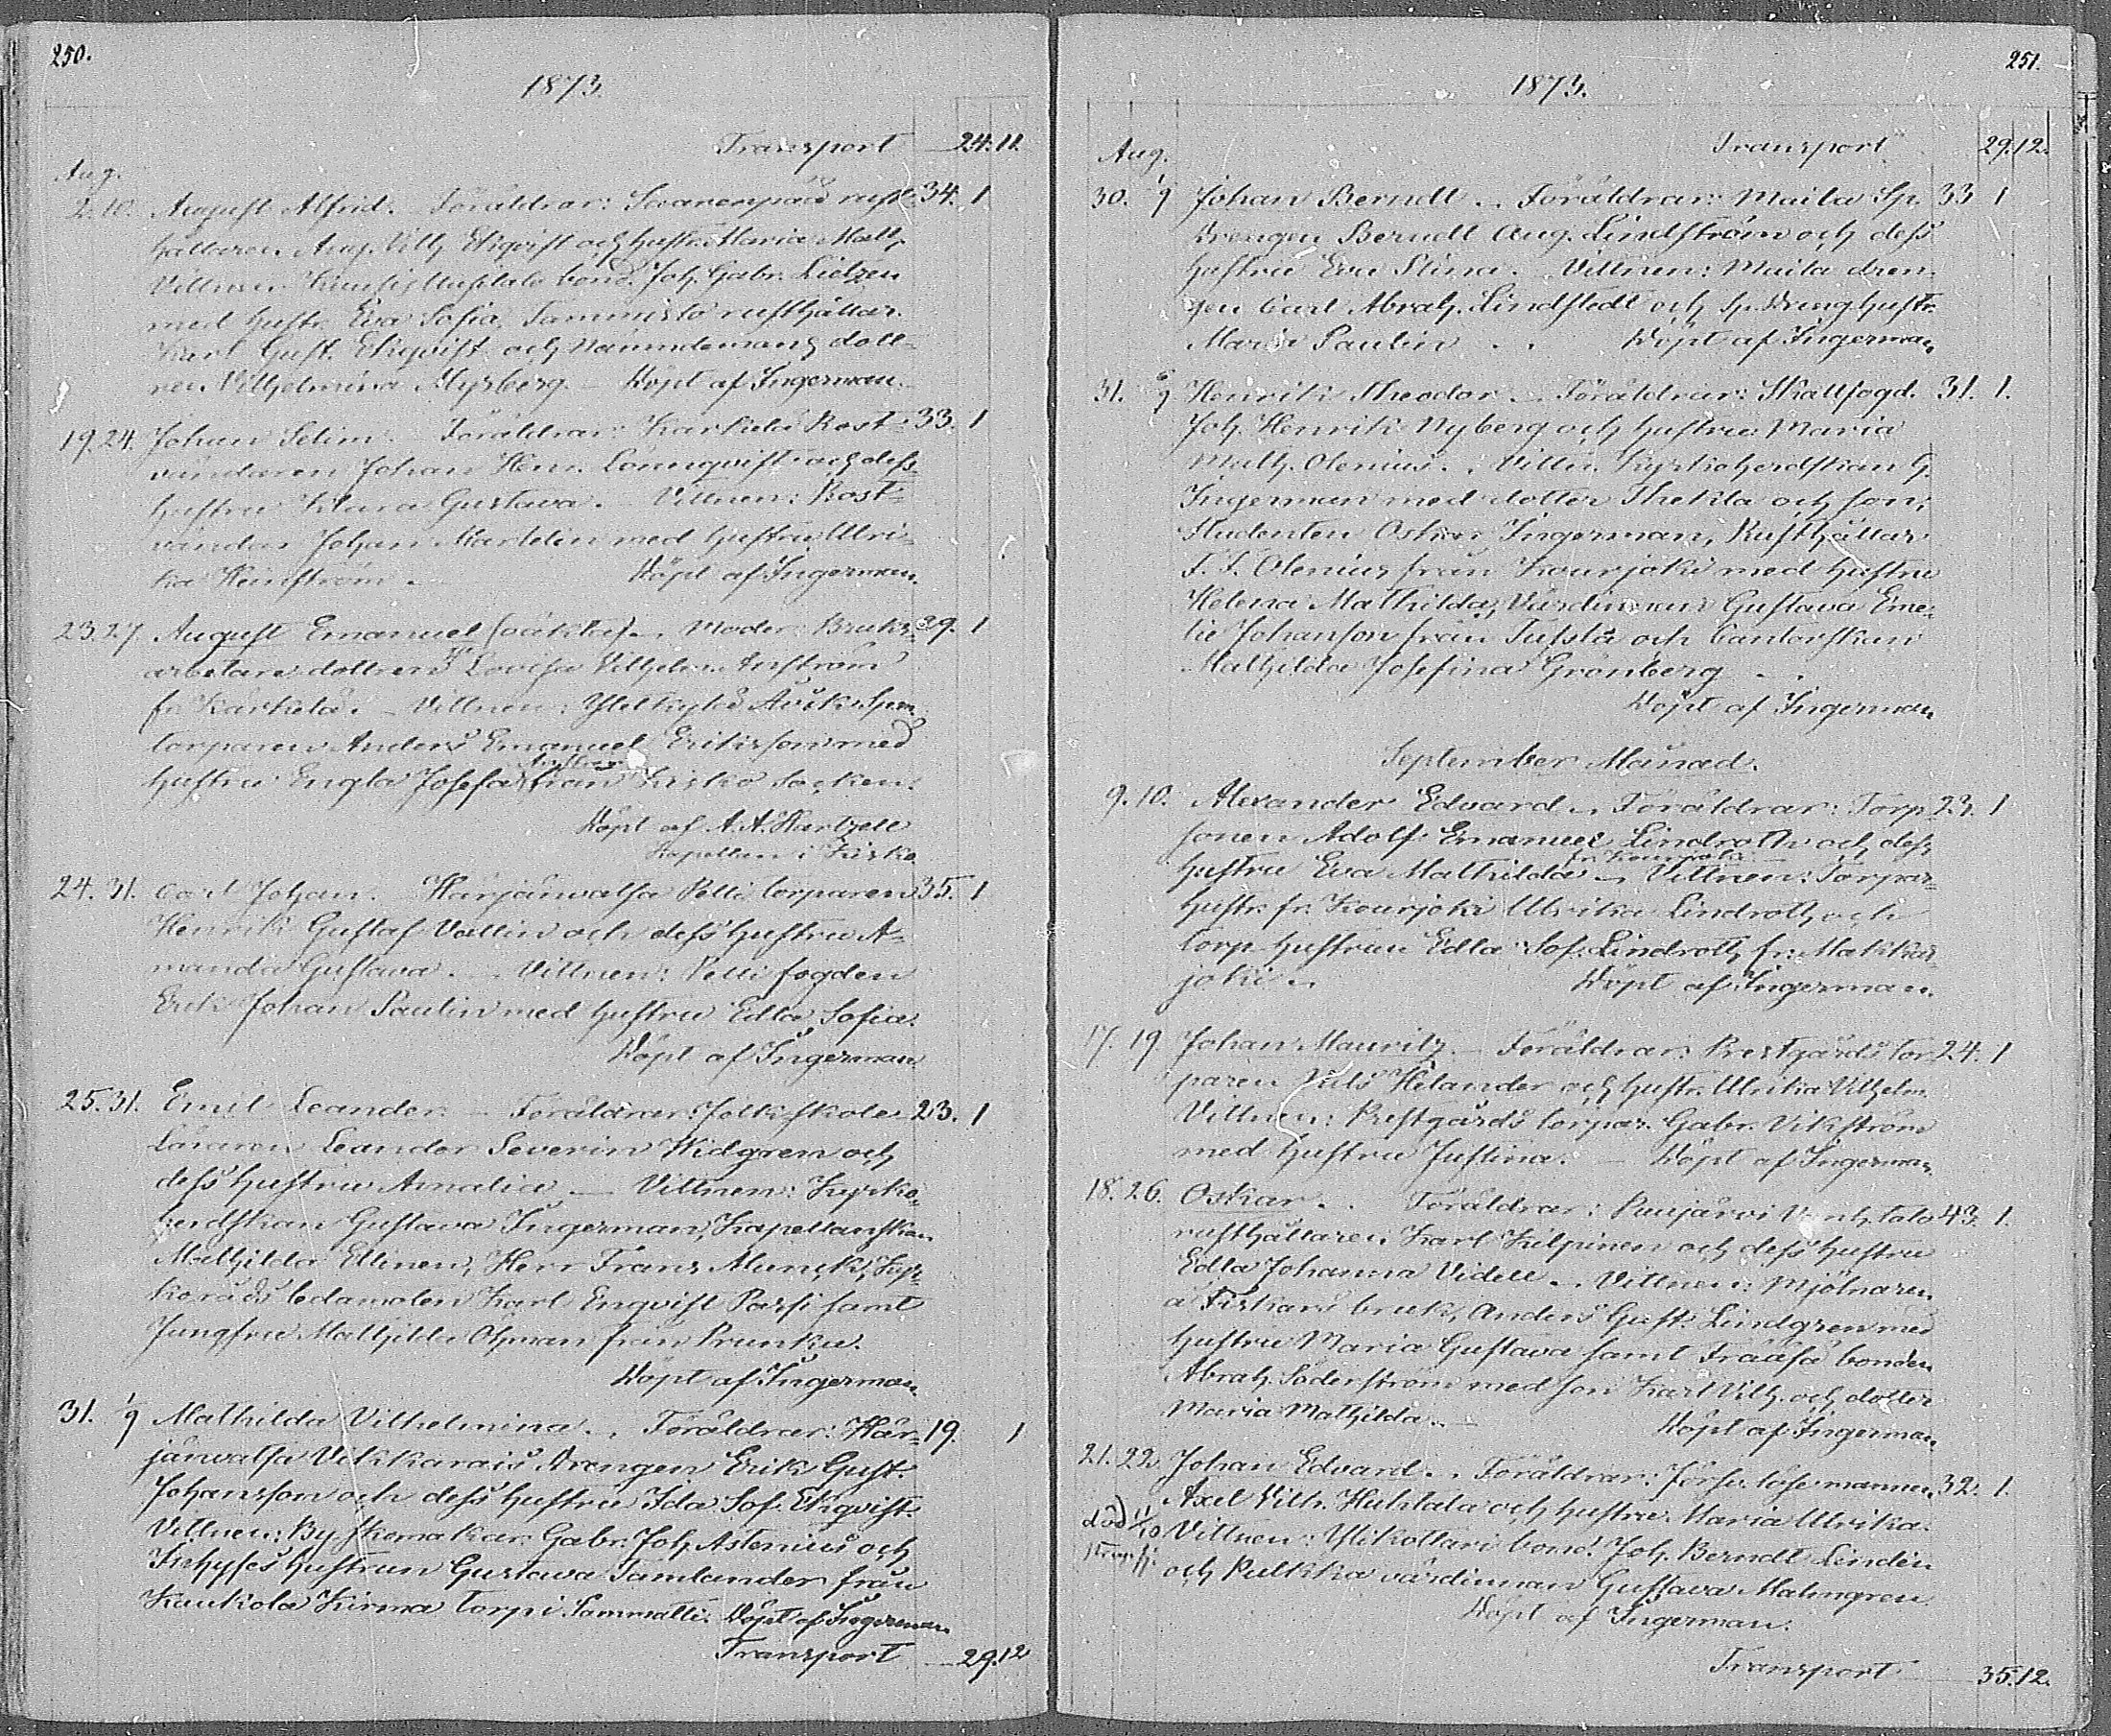 250.
1873.
Transport 24. 11.
Aug.
2. 10. August Alfrid. Föräldrar: rust- 34. 1
hållaren Aug. Vilh. Ekqvist och hustr. Maria Math.
Vittnen: bond. Joh. Gabr. Lietzen
med hustr. Eva Sofia, Tammisto rusthållar.
Karl Gust. Ekqvist och Nämndemans dott-
ren Vilhelmina Myrberg. – Döpt af Ingerman.
19. 24. Johan Selim. Föräldrar: Karkela Rost- 33. 1
vändaren Johan Henr. Lönnqvist och dess
hustru Klara Gustava. Vittnen: Rost-
vändar Johan Martelin med hustru Ulri-
ka Heinström. Döpt af Ingerman.
23. 27 August Emanuel (oäkta). Moder: Bruks- 29. 1
arbetare dottren Lovisa Vilhelm. Anström
fr. Karkela. – Vittnen:
torparen Anders Emanuel Eriksson med
hustru Engla Josefa från Kisko Socken.
Döpt af A. A. Hartzell
Kapellan i Kisko.
24. 31. Carl Johan. Härjänvatsa Pelli torparen 35. 1
Henrik Gustaf Vallin och dess hustru A-
manda Gustava. – Vittnen: Pelli fogden
Erik Johan Paulin med hustru Edla Sofia.
Döpt af Ingerman.
25. 31. Emil Leander. – Föräldrar: Folkskole- 23. 1
Läraren Leander Severin Widgren och
dess hustru Amalia. – Vittnen: Kyrko-
herdskan Gustava Ingerman, Kapellanskan
Mathilda Ellinen, Herr Frans Munck, Kyr-
koråds ledamoten Karl Enqvist Parsi samt
Jungfru Mathilda Öhman från Prunku.
Döpt af Ingerman.
31. 1/9 Mathilda Vilhelmina. Föräldrar: Här- 19. 1
jänvatsa Vikkarais Drengen Erik Gust.
Johansson och dess hustru Ida Sof. Ekqvist.
Vittnen: By skomakar. Gabr. Joh. Astenius och
Inhyses hustrun Gustava Tamlander från
Kaukola Kirma torp i Sammatti. Döpt af Ingerman
Transport 29. 12
251.
1873.
Aug. Transport 29. 12.
30. 1/9 Johan Berndt. Föräldrar: Maila Sp. 33 1
Drengen Berndt Aug. Lindström och dess
hustru Eva Stina. Vittnen: Maila dren-
gen Carl Abrah. Lindstedt och Sp. Dreng hustr.
Maria Paulin. Döpt af Ingerman.
31. 6/9 Henrik Theodor. Föräldrar: Skallfogd. 31. 1.
Joh. Henrik Nyberg och hustru Maria
Math. Olenius. Vittn. Kyrkoherdskan G.
Ingerman med dotter Thekla och son,
Studenten Oskar Ingerman, Rusthållar
F. F. Olenius från Kourjoki med hustru
Helena Mathilda, Värdinnan Gustava Eme-
lie Johanson från och Cantorskan
Mathilda Josefina Grönberg.
Döpt af Ingerman
September Månad.
9. 10. Alexander Edvard. Föräldrar: Torp- 23. 1
sonen Adolf Emanuel Lindroth och dess
fr. Kourjoki
hustru Eva Mathilda – Vittnen: Torpar-
hustr. fr. Kourjoki Ulrika Lindroth och
torp. hustrun Edla Sof. Lindroth fr. Makkar-
joki. Döpt af Ingerman.
17. 19 Johan Mauritz. – Föräldrar: Prestgårds tor- 24. 1
paren Hilander och hustr. Ulrika Vilhelm.
Vittnen: Prestgårds torpar. Gabr. Vikström
med hustru Justina. – Döpt af Ingerman
18. 26. Oskar. Föräldrar: Puujärvi 43. 1.
rusthållaren Karl Kilpinen och dess hustru
Edla Johanna Videll. Vittnen: Mjölnaren
å Fiskars bruk, Anders Gust. Lindgren med
hustru Maria Gustava samt bonden
Abrah. Söderström med son Karl Vilh. och dotter
Maria Mathilda. – Döpt af Ingerman
21. 22. Johan Edvard. Föräldrar: lösemannen 32. 1.
Axel Vilh. Huhtala och hustru Maria Ulrika.
död 11/10 Vittnen: bond. Joh. Berndt Lindén
och Pulkka värdinnan Gustava Malmgren
Döpt af Ingerman.
Transport 35. 12.